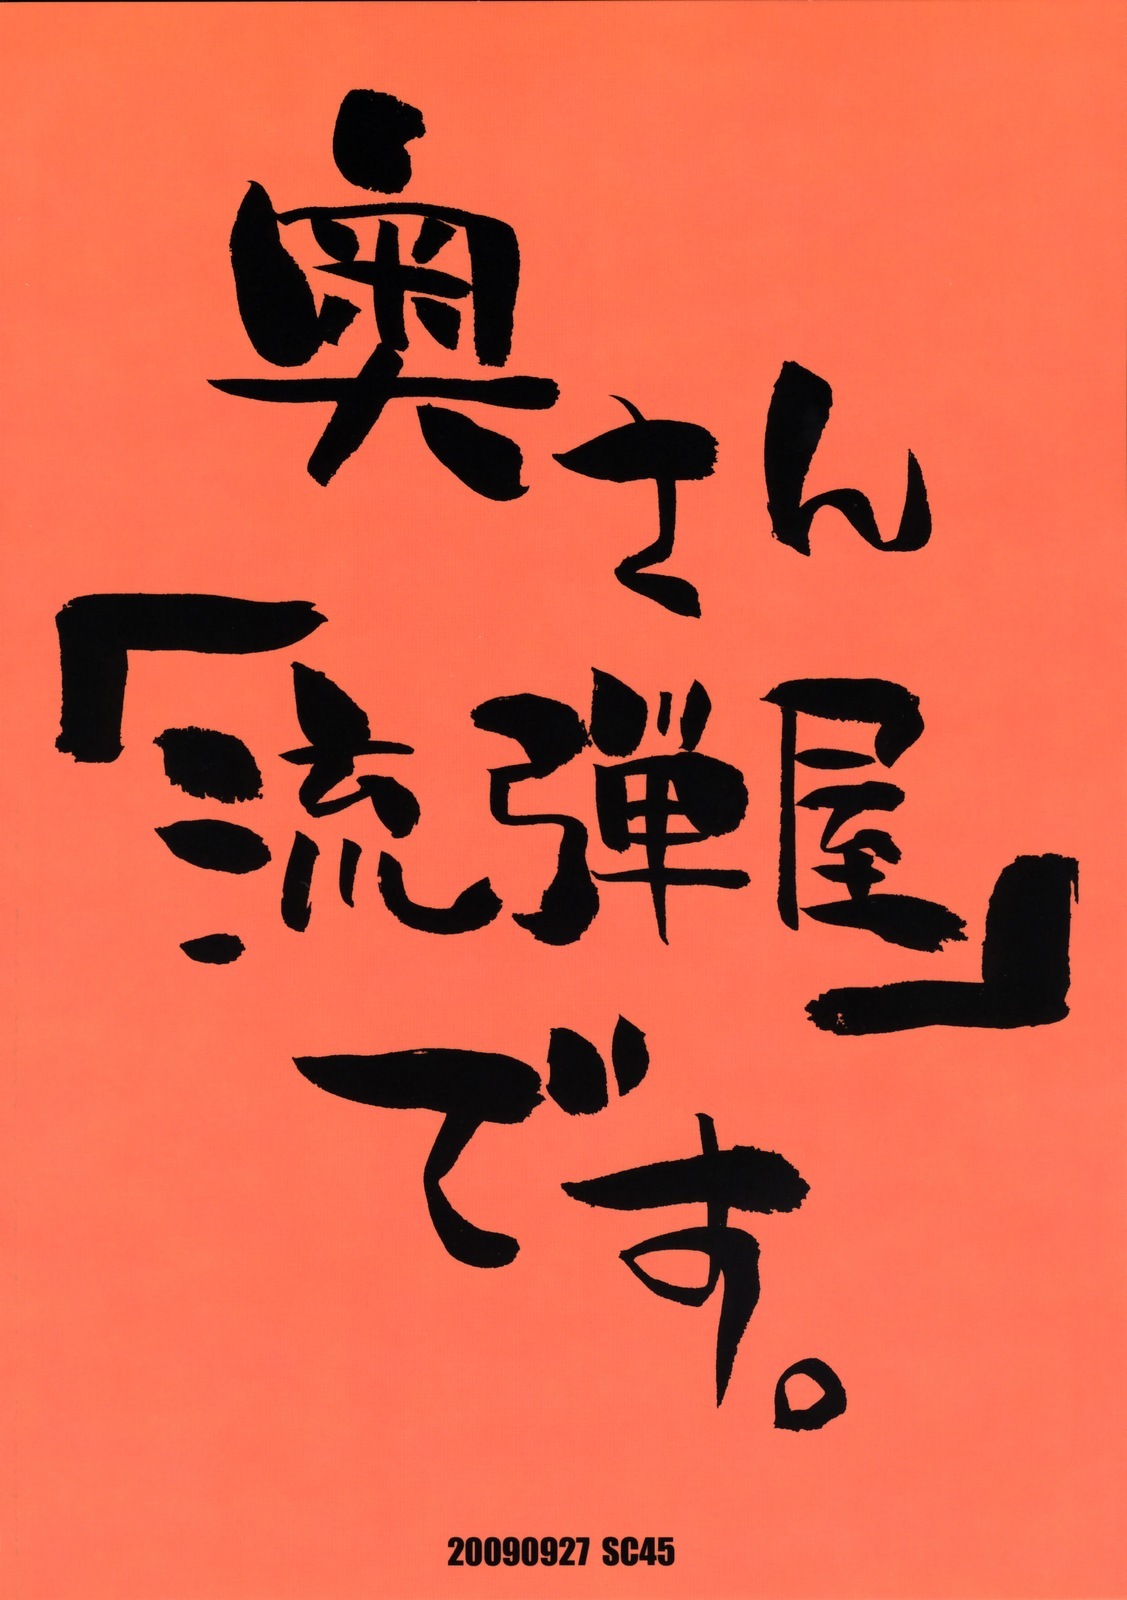 奥さん
「流弾屋」
です。
20090927 SC45